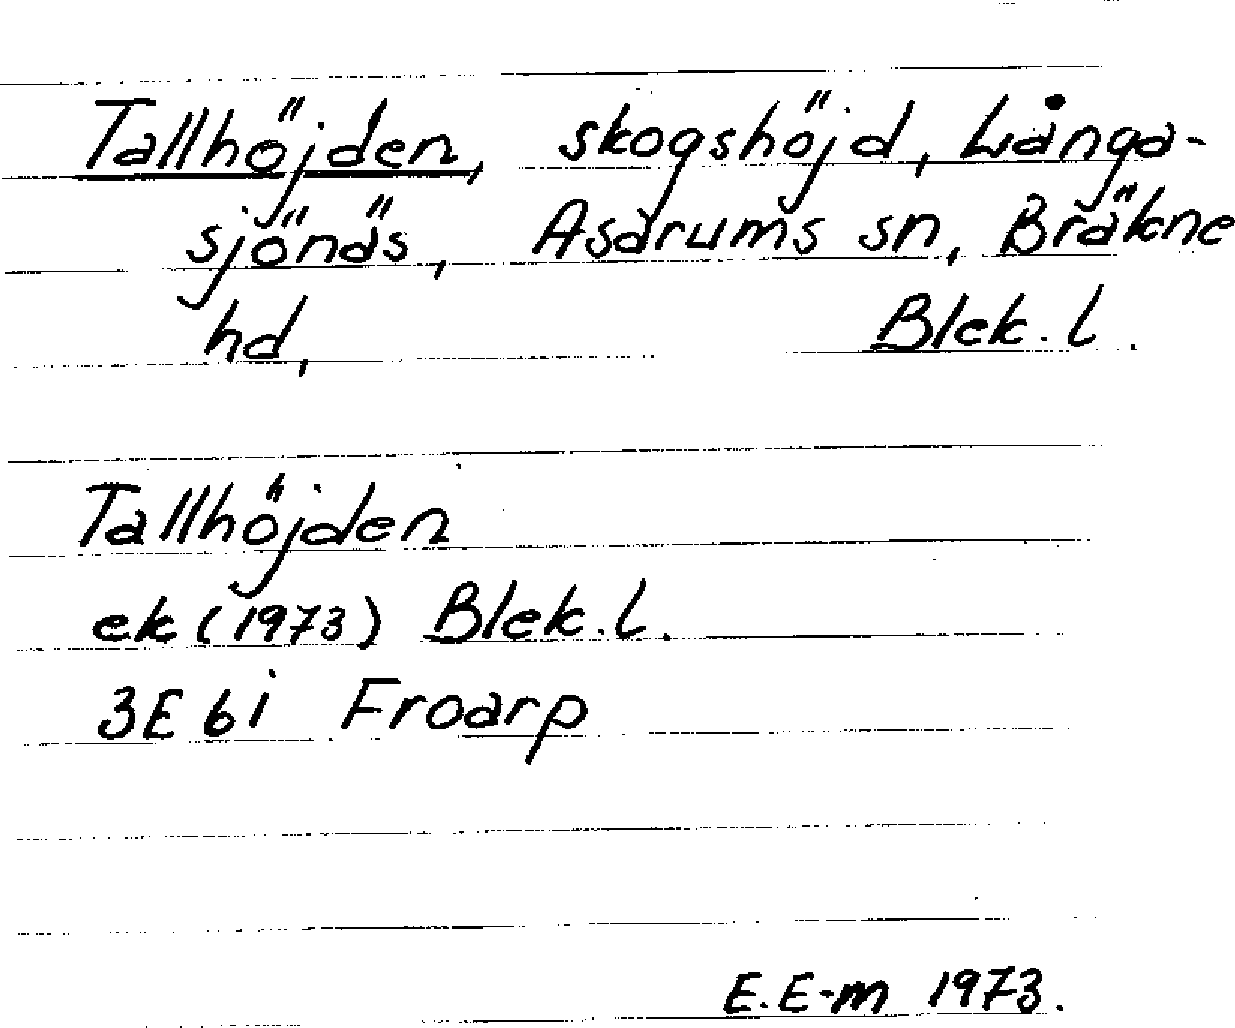 Tallhöjden, skogshöjd, Långa-
sjönäs, Asarums sn, Bräkne
hd, Blek. l.
Tallhöjden
ek (1973) Blek. l.
3E 6i Froarp
E. E-m 1973.